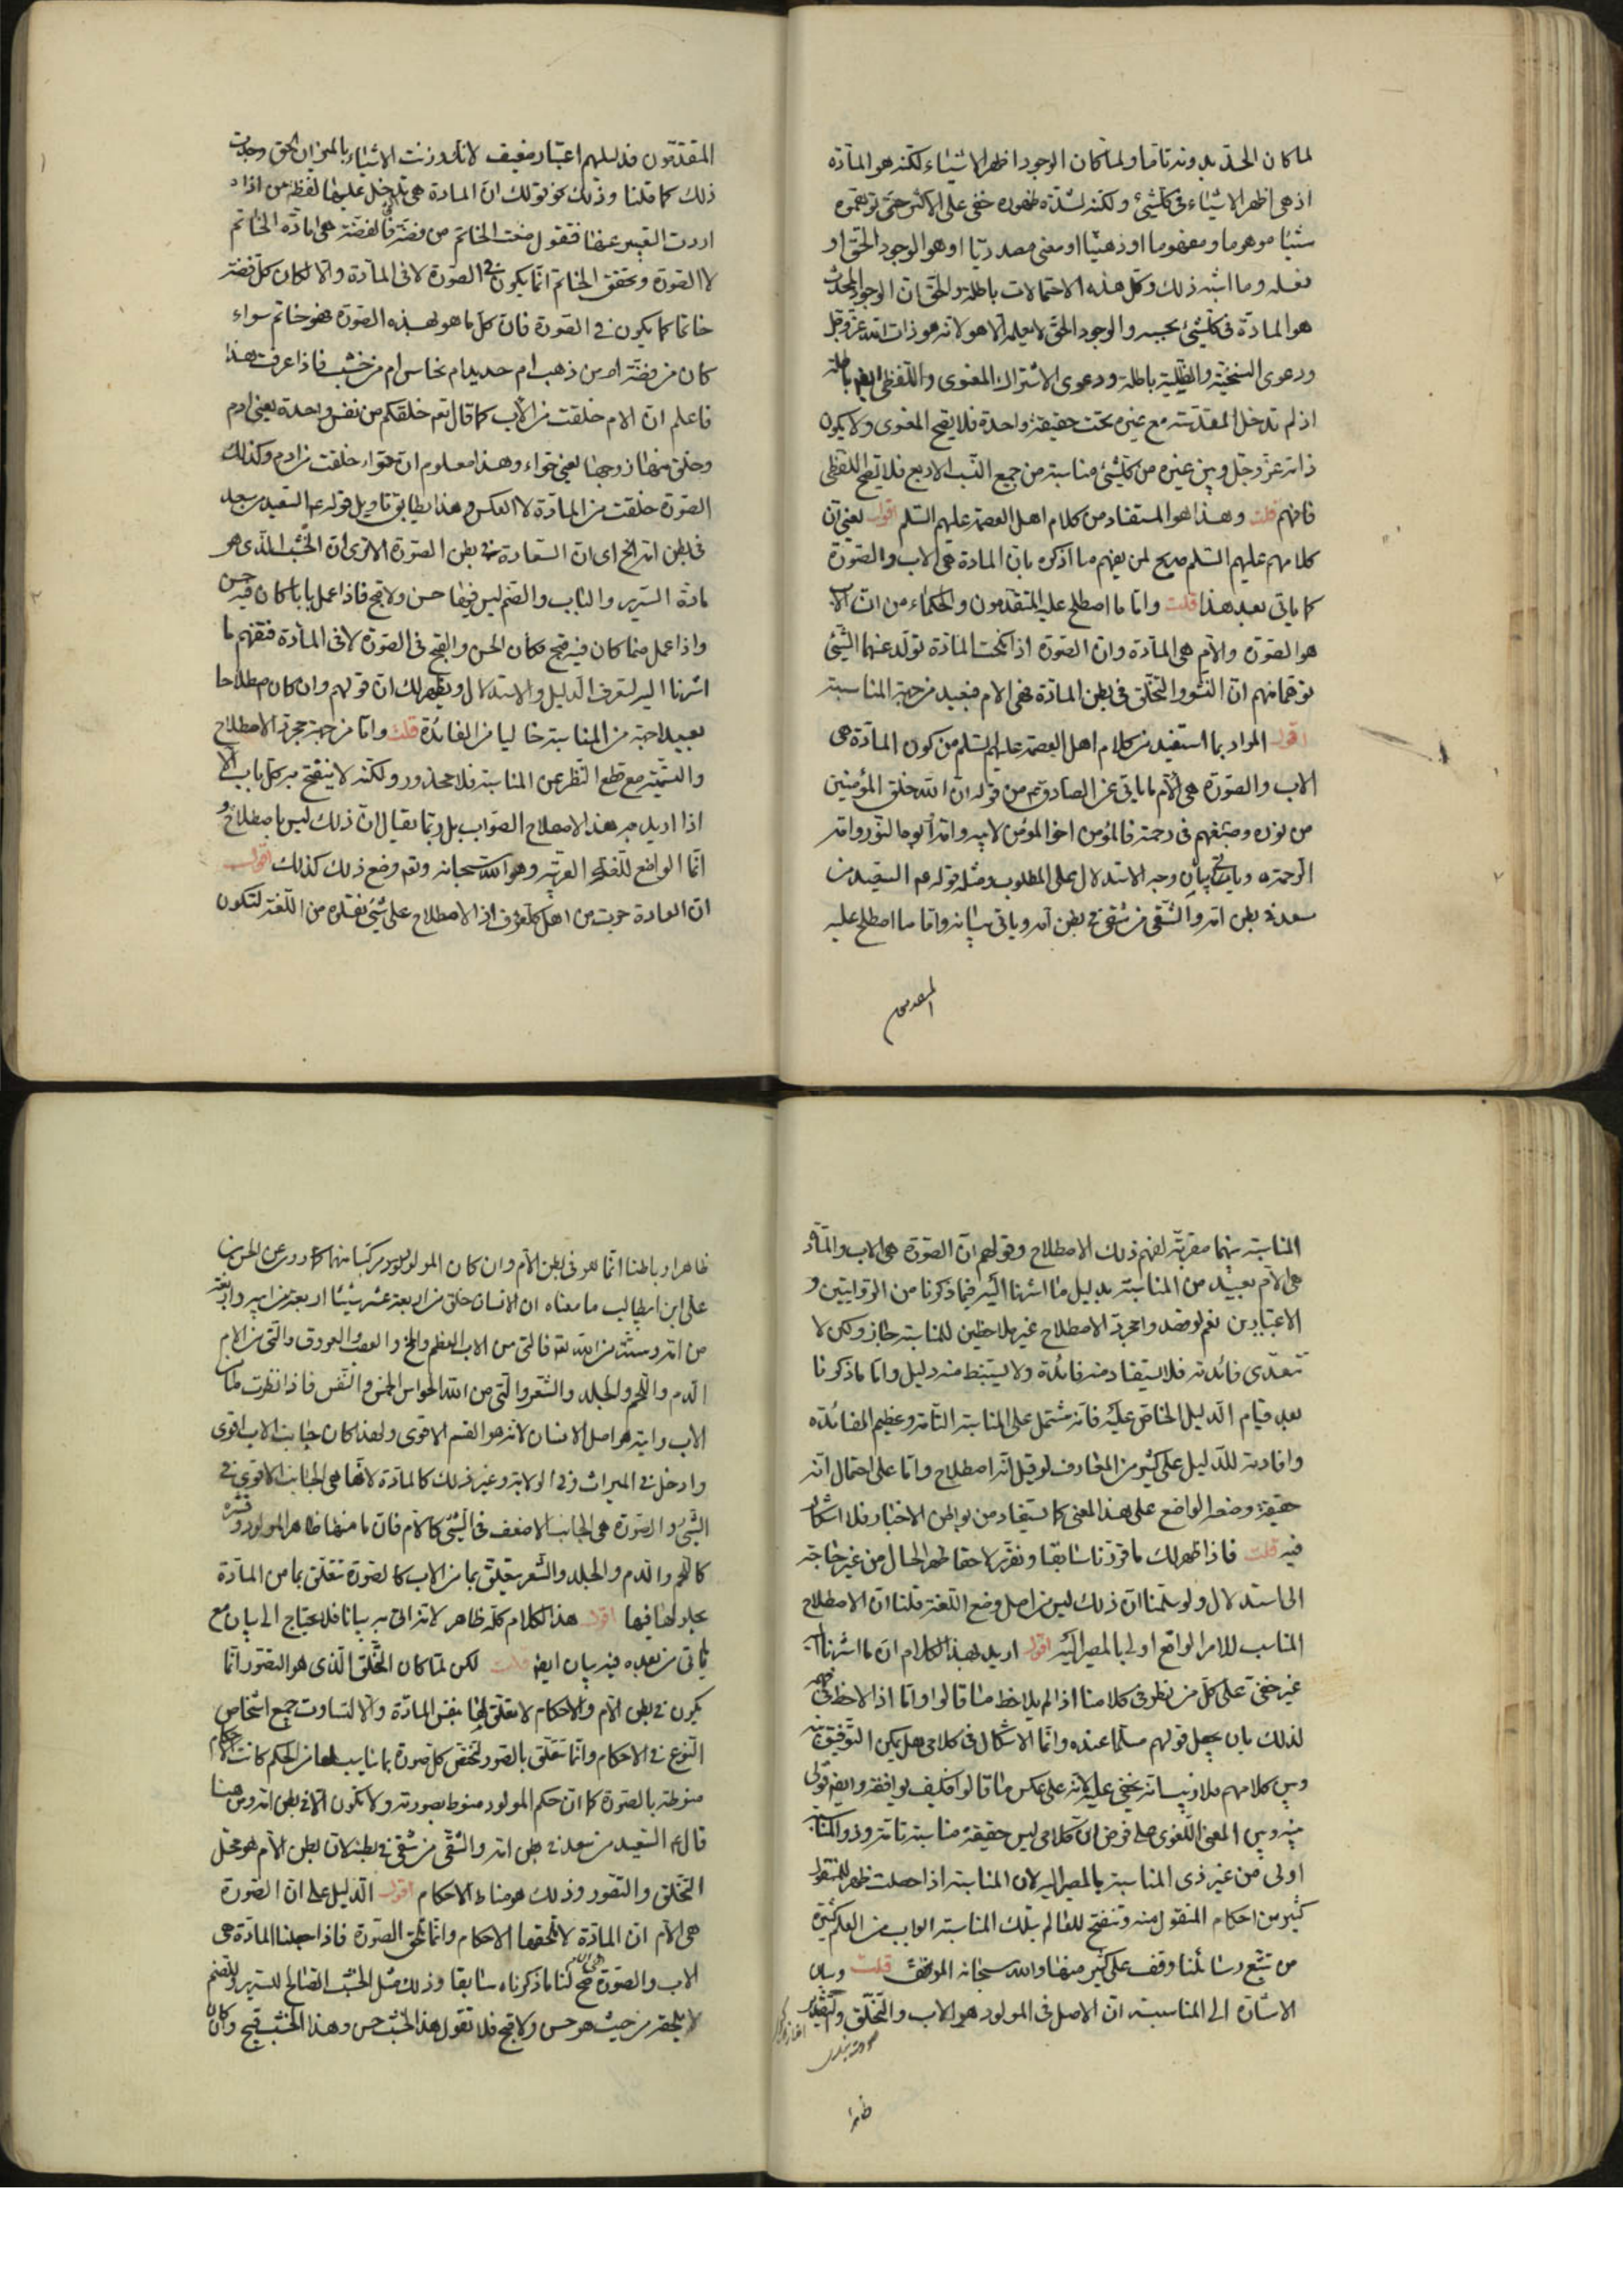 لما كان الحدّ بدونه تاما ولما كان الوجود اظهر الاشياء لكنه هو المادّة
اذ هى اظهر الاشياء فى كلّشئ ولكنه لشدّة ظهوره خفى على الاكثر حتى توهموه
شيئا موهوما ومفهوما او ذهنيّا او معنى مصدريّا او هو الوجود الحقّ او
فعله وما اشبه ذلك وكل هذه الاحتمالات باطلة والحقّ ان الوجود المحدث
هو المادّة فى كلّشئ بحسبه والوجود الحقّ لا يعلمه الا هو لانه هو ذات الله عزّ وجلّ
ودعوى السنخيّة والظليّة باطلة ودعوى الاشتراك المعنوى واللّفظى ايضا باطلة
اذ لم تدخل المقدّسة مع غيره تحت حقيقة واحدة فلا يصح المعنوى ولا يكون
ذاته عزّ وجلّ وبين غيره من كلّشئ مناسبة من جميع النّسب الاربع فلا يصحّ اللفظى
فافهم قلت وهذا هو المستفاد من كلام اهل العصمة عليهم السّلم اقول يعنى ان
كلامهم عليهم السّلم صريح لمن يفهم ما اذكره بان المادة هى الاب والصّورة
كما ياتى بعد هذا قلت وامّا ما اصطلح عليه المتقدّمون والحكماء من ان الاب
هو الصّورة والام هى المادة وان الصّورة اذا نكحت المادّة تولّد عنهما الشّئ
توهّما منهم انّ النّشو والتخلّق فى بطن المادّة فهى الام فبعيد من جهة المناسبة
اقول المراد بما استفيد من كلام اهل العصمة عليهم السّلم من كون المادّة هى
الاب والصّورة هى الامّ ما ياتى عن الصادق ع من قوله انّ الله خلق المؤمنين
من نوره وصبغهم فى رحمته فالمؤمن اخو المؤمن لابيه وامّه ابوه النّور وامّه
الرّحمة وياتى بيان وجه الاستدلال على المطلوب ومثله قوله ع السّعيد من
سعد فى بطن امّه والشّقى من شقى فى بطن امّه وياتى بيانه وامّا ما اصطلح عليه
المتقدمون
المتقدّمون فدليلهم اعتبار ضعيف لانّك اذا وزنت الاشياء بالميزان الحق وجدت
ذلك كما قلنا وذلك نحو قولك انّ المادة هى تدخل عليها لفظة من اذا
اردت التعبير عنها فتقول صنعت الخاتم من فضّة فالفضّة هى مادّة الخاتم
لا الصّورة وتحقق الخاتم انّما يكون فى الصّورة لا فى المادّة والا لكان كلّ فضّة
خاتما كما يكون فى الصّورة فان كلّ ما هو بهذه الصّورة فهو خاتم سواء
كان من فضّة ام من ذهب ام حديد ام نحاس ام من خشب فاذا عرفت هذا
فاعلم انّ الام خلقت من الاب كما قال تع خلقكم من نفس واحدة يعنى ادم
وخلق منها زوجها يعنى حوّاء وهذا معلوم ان حوّاء خلقت من ادم وكذلك
الصّورة خلقت من المادّة لا العكس وهذا يطابق تاويل قوله ع السّعيد من سعد
فى بطن امه الخ اى انّ السّعادة فى بطن الصّورة الا ترى ان الخشب الّذى هو
مادة السّرير والباب والصّنم ليس فيها حسن ولا قبح فاذا عمل بابا كان فيه حسن
واذا عمل صنما كان فيه قبح فكان الحسن والقبح فى الصّورة لا فى المادّة فتفهّم ما
اشرنا اليه لتعرف الدّليل والاستدلال ويظهر لك انّ قولهم وان كان اصطلاحا
بعيد احبة من المناسبة خاليا من الفائدة قلت وامّا من جهة مجرّد الاصطلاح
والتسّميّة مع قطع النّظر عن المناسبة فلا محذور ولكنّه لا ينفتح به كلّ باب الا
اذا اريد به هذا الاصطلاح الصّواب بل ربّما يقال انّ ذلك ليس باصطلاح و
انّما الواضع للّغة العربيّة وهو الله سبحانه وتع وضع ذلك كذلك اقول
انّ العادة جرت من اهل كلّ عرف اذا اصطلاح على شئ نقلوه من اللّغة لتكون
المناسبة بينهما مقربة لفهم ذلك الاصطلاح وقولهم انّ الصّورة هى الاب والمادّة
هى الام بعيد من المناسبة بدليل ما اشرنا اليه فيما ذكرنا من الرّوايتين و
الاعتبارين نعم لو قصدوا مجرّد الاصطلاح غير ملاحظين للمناسبة جاز ولكن لا
تتعدّى فائدته فلا يستفاد منه فائدة ولا يستنبط منه دليل وامّا ما ذكرنا
بعد قيام الدّليل الخاصّ عليه فانّه مشتمل على المناسبة التّامة وعظيم الفائدة
وافادته للدّليل على كثير من المعارف لو قيل انّه اصطلاح وامّا على احتمال انّه
حقيقة وضعه الواضع على هذا المعنى كما يستفاد من بواطن الاخبار فلا اشكال
فيه قلت فاذا ظهر لك ما قرّرنا سابقا ونقرّر لاحقا ظهر الحال من غير حاجة
الى استدلال ولو سلّمنا ان ذلك ليس من اصل وضع اللّغة قلنا ان الاصطلاح
المناسب للامر الواقع اولى بالمصير اليه اقول اريد بهذا الكلام ان ما اشرنا اليه
غير خفىّ على كلّ من نظر فى كلامنا اذا لم يلاحظ ما قالوا وامّا اذا لاحظ
لذلك بان يجعل قولهم مسلّما عنده وانّما الاشكال فى كلامى هل يمكن التّوفيق بينه
وبين كلامهم فلا ريب انّه يخفى عليه لانّه على عكس ما قالوا فكيف يوافقه وايضا قولى
بينه وبين المعنى اللّغوى على فرض انّ كلامى ليس حقيقة مناسبة تامّة وذو المناسبة
اولى من غير ذى المناسبة بالمصير اليه لان المناسبة اذا حصلت ظهر للمنقول
كثير من احكام المنقول منه وتنفتح للعالم بتلك المناسبة ابواب من العلم كثيرة
من تتبّع رسائلنا وقف على كثير منها والله سبحانه الموفّق قلت وبيان
الاشارة الى المناسبة انّ الاصل فى المولود هو الاب والتخلّق والتقدير
ظاهرا
ظاهرا وباطنا انّما هو فى بطن الامّ وان كان المولود مركّبا منهما كما ورد عن الحسن بن
على ابن ابيطالب ما معناه ان الانسان خلق من اربعة عشر شيئا اربعة من ابيه واربعة
من امّه وستّة من الله تع فالتى من الاب العظم والمخ والعصب والعروق والّتى من الام
الدّم واللّحم والجلد والشّعر والّتى من الله الحواس الخمس والنّفس فاذا نظرت ما من
الاب رايته هو اصل الانسان لانّه هو القسم الاقوى ولهذا كان جانب الاب اقوى
وادخل فى الميراث وفى الولاية وغير ذلك كالمادّة لانّها هى الجانب الاقوى فى
الشّئ والصّورة هى الجانب الاضعف فى الشّئ كالام فانّ ما منها ظاهر المولود وقشره
كاللّحم والدّم والجلد والشّعر يتعلّق بما من الاب كالصّورة تتعلّق بما من المادّة
بحلولها فيها اقول هذا الكلام كلّه ظاهر لانه يراد به بيانا فلا يحتاج الى بيان مع
ما ياتى من بعده فيه بيان ايضا قلت لكن لمّا كان التّخلّق الّذى هو التصّور انّما
يكون فى بطن الامّ والاحكام لا تعلّق لها بنفس المادّة والّا لتساوت جميع اشخاص
النّوع فى الاحكام وانّما تتعلّق بالصّور لتخصّ كل صورة بما يناسب لها من الحكم كانت الاحكام
منوطة بالصّورة كما انّ حكم المولود منوط بصورته ولا تكون الّا فى بطن امّه ومن هنا
قال ع السّعيد من سعد فى بطن امّه والشّقى من شقى فى بطنها لان بطن الامّ هو محلّ
التّخلّق والتّصّور وذلك هو مناط الاحكام اقول الدّليل على انّ الصّورة
هى الامّ انّ المادّة لا تلحقها الاحكام وانّما تلحق الصّورة فاذا جعلنا المادّة هى
الاب والصّورة هى الام صحّ لنا ما ذكرناه سابقا وذلك مثل الخشب الصّالح للسّرير وللصّنم
لا يلحقه من حيث هو حسن ولا قبح فلا تقول هذا الخشب حسن وهذا الخشب قبيح وكان